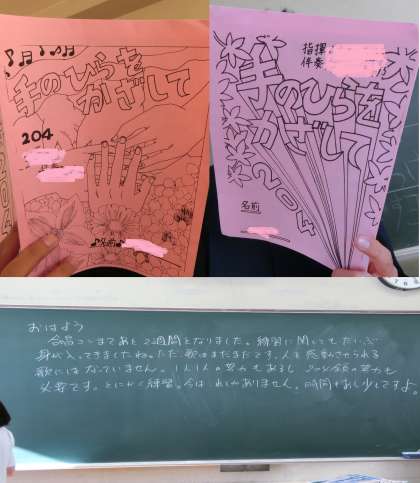 手のひらを
かざして
204
名前
204
指揮
伴奏
手のひらを
かざして
204
名前
おはよう
合唱コンまであと2週間となりました。練習に関してもだいぶ
身が入ってきましたね。ただ、歌はまだまだです。人を感動させられる
歌にはなっていません。1人1人の努力もあるし、204の努力も
必要です。とにかく練習。今は それしかありません。時間もあと少しですよ。